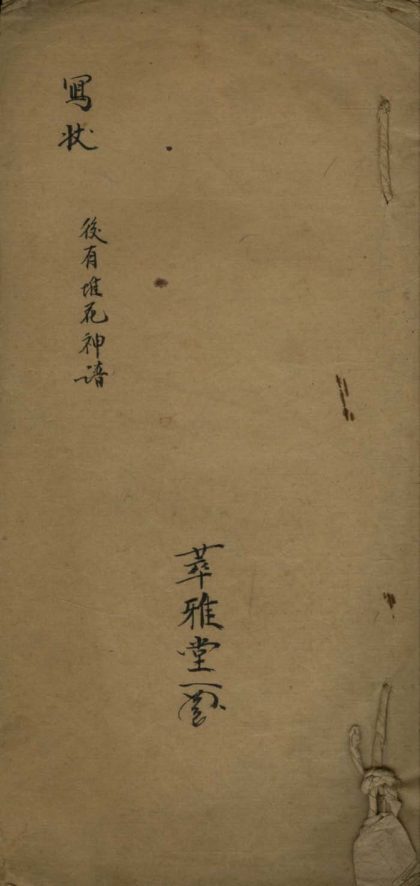 冩状
後有堆花神譜
萃雅堂